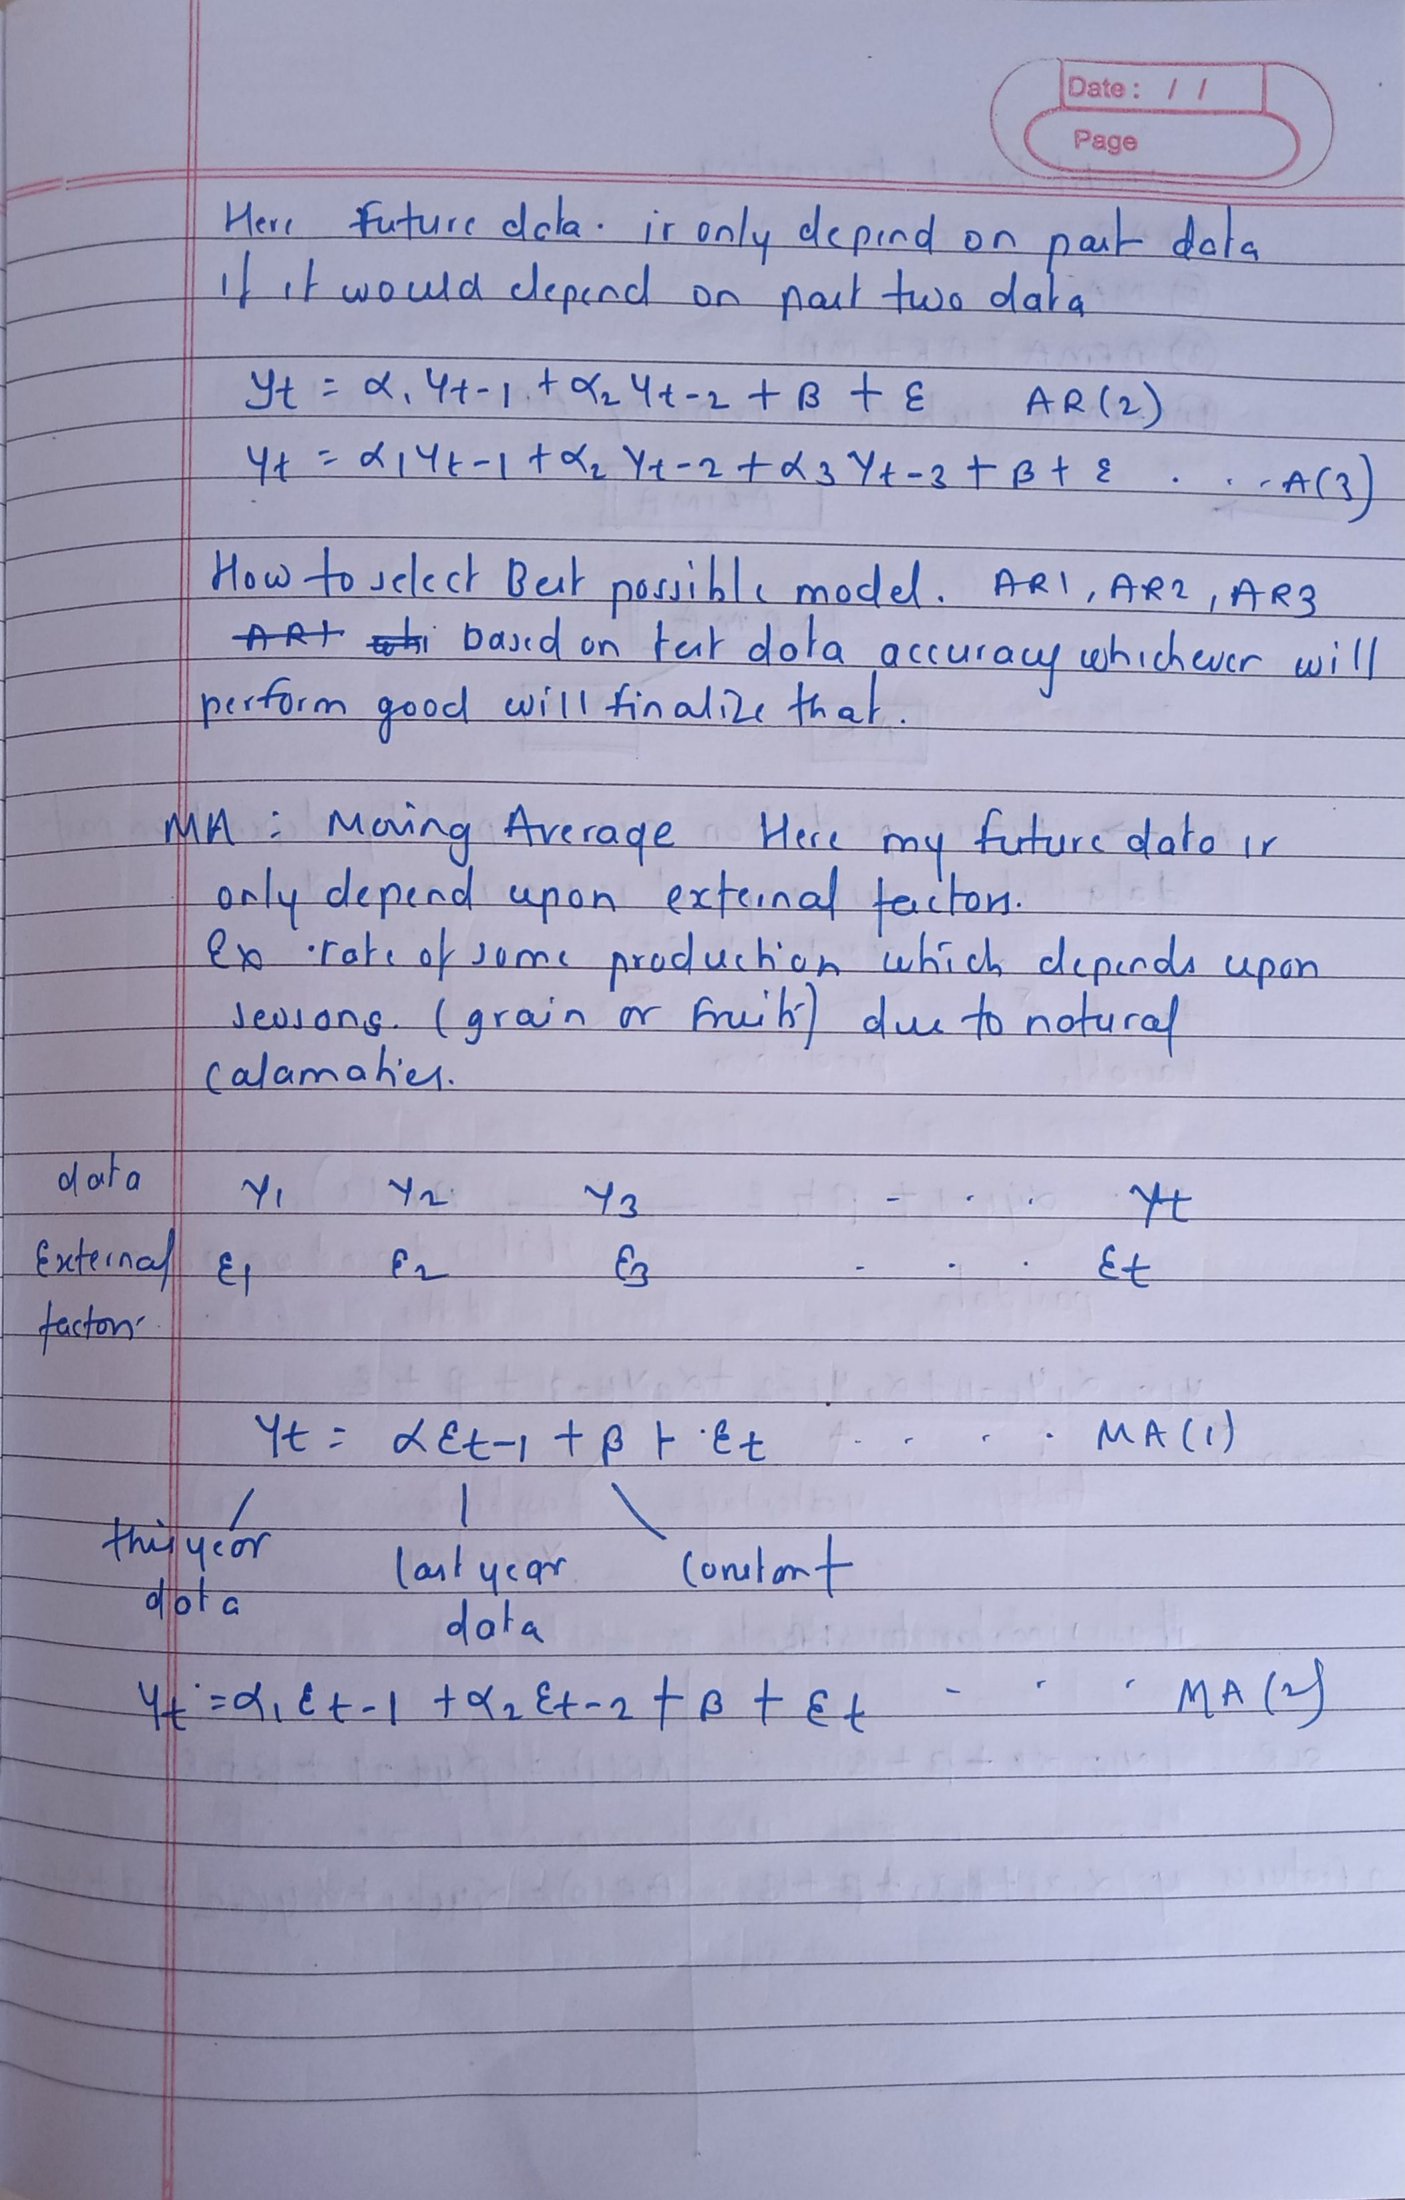 Date : / /
Page
Here future data is only depend on past data
if it would depend on past two data
yt = α1 yt-1 + α2 yt-2 + β + ε AR(2)
yt = α1 yt-1 + α2 yt-2 + α3 yt-3 + β + ε . . . A(3)
How to select Best possible model. AR1, AR2, AR3
based on test data accuracy whichever will
perform good will finalize that.
MA : Moving Average Here my future data is
only depend upon external factors.
Ex rate of some production which depends upon
seasons. (grain or fruits) due to natural
calamaties.
data Y1 Y2 Y3 - . . yt
External ε1 ε2 ε3 - . . εt
factors
yt = αεt-1 + β + εt . . . . MA(1)
this year last year constant
data data
yt = α1 εt-1 + α2 εt-2 + β + εt - . . MA(2)